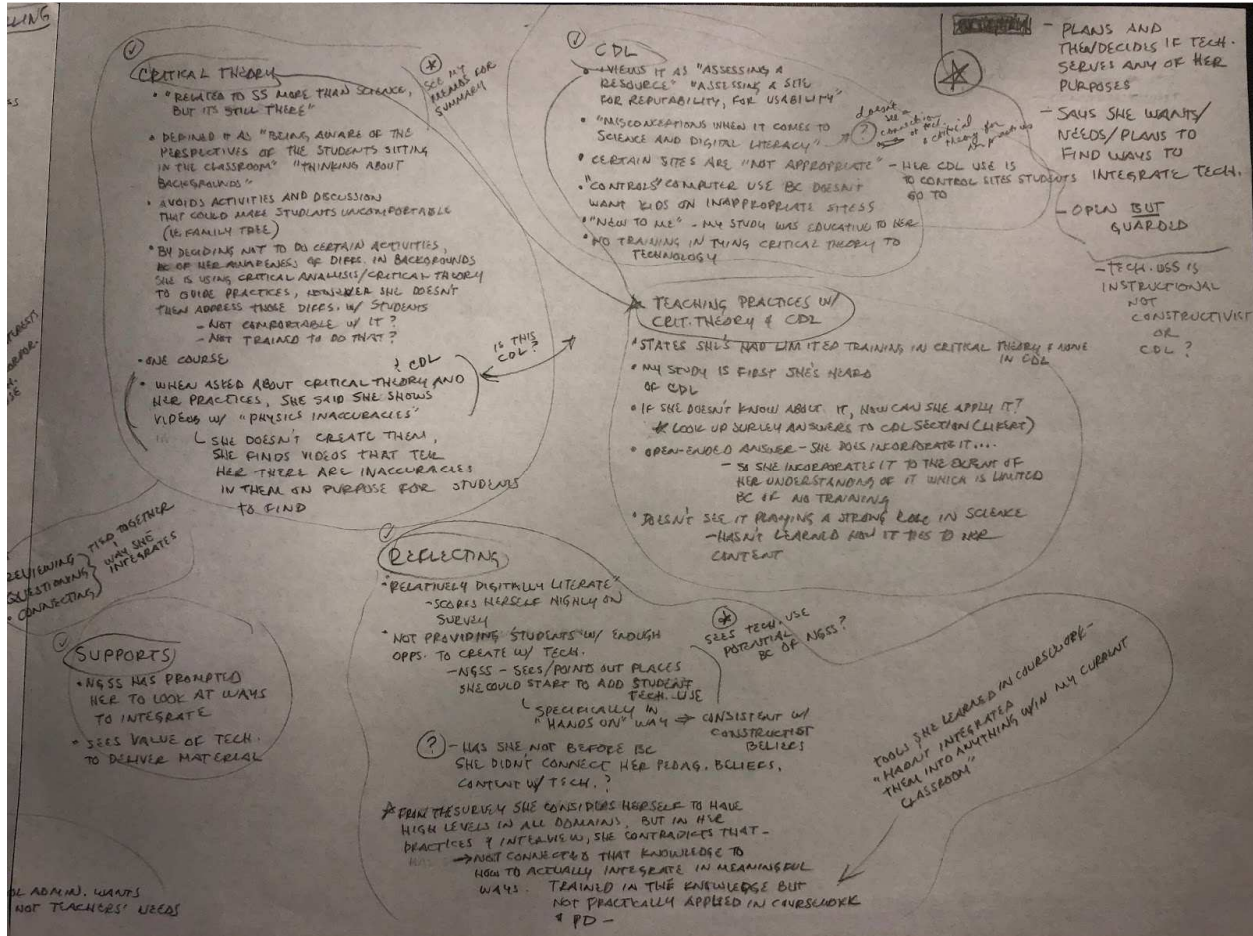 CRITICAL THEORY
• "RELATED TO SS MORE THAN SCIENCE,
BUT ITS STILL THERE"
• DEFINED IT AS "BEING AWARE OF THE
PERSPECTIVES OF THE STUDENTS SITTING
IN THE CLASSROOM" "THINKING ABOUT
BACKGROUNDS"
• AVOIDS ACTIVITIES AND DISCUSSION
THAT COULD MAKE STUDENTS UNCOMFORTABLE
(IE FAMILY TREE)
• BY DECIDING NOT TO DO CERTAIN ACTIVITIES,
BC OF HER AWARENESS OF DIFFS. IN BACKGROUNDS
SHE IS USING CRITICAL ANALYSIS/CRITICAL THEORY
TO GUIDE PRACTICES, HOWEVER SHE DOESN'T
THEN ADDRESS THOSE DIFFS. W/ STUDENTS
- NOT COMFORTABLE W/ IT?
- NOT TRAINED TO DO THAT?
• ONE COURSE
& CDL
• WHEN ASKED ABOUT CRITICAL THEORY AND
HER PRACTICES, SHE SAID SHE SHOWS
VIDEOS W/ "PHYSICS INACCURACIES"
SHE DOESN'T CREATE THEM,
SHE FINDS VIDEOS THAT TELL
HER THERE ARE INACCURACIES
IN THEM ON PURPOSE FOR STUDENTS
TO FIND
SEE MY
MEMOS FOR
SUMMARY
IS THIS
CDL?
CDL
• VIEWS IT AS "ASSESSING A
RESOURCE" "ASSESSING A SITE
FOR REPUTABILITY, FOR USABILITY"
• "MISCONCEPTIONS WHEN IT COMES TO
SCIENCE AND DIGITAL LITERACY"
?
doesn't
see
connection
critical
theory for
• CERTAIN SITES ARE "NOT APPROPRIATE" - HER CDL USE IS
TO CONTROL SITES STUDENTS
GO TO
• "CONTROLS" COMPUTER USE BC DOESN'T
WANT KIDS ON INAPPROPRIATE SITESS
• "NEW TO ME" - MY STUDY WAS EDUCATIVE TO HER
• NO TRAINING IN TYING CRITICAL THEORY TO
TECHNOLOGY
- PLANS AND
THEN DECIDES IF TECH.
SERVES ANY OF HER
PURPOSES
- SAYS SHE WANTS/
NEEDS/PLANS TO
FIND WAYS TO
INTEGRATE TECH.
- OPEN BUT
GUARDED
- TECH. USE IS
INSTRUCTIONAL
NOT
CONSTRUCTIVIST
OR
CDL?
TEACHING PRACTICES W/
CRIT. THEORY & CDL
• STATES SHE'S HAD LIMITED TRAINING IN CRITICAL THEORY & NONE
IN CDL
• MY STUDY IS FIRST SHE'S HEARD
OF CDL
• IF SHE DOESN'T KNOW ABOUT IT, HOW CAN SHE APPLY IT?
* LOOK UP SURVEY ANSWERS TO CDL SECTION (LIKERT)
• OPEN-ENDED ANSWER - SHE DOES INCORPORATE IT....
- SO SHE INCORPORATES IT TO THE EXTENT OF
HER UNDERSTANDING OF IT WHICH IS LIMITED
BC OF NO TRAINING
• DOESN'T SEE IT PLAYING A STRONG ROLE IN SCIENCE
- HASN'T LEARNED HOW IT TIES TO HER
CONTENT
REVIEWING
QUESTIONING
• CONNECTING
TIED TOGETHER
WAY SHE
INTEGRATES
SUPPORTS
• NGSS HAS PROMPTED
HER TO LOOK AT WAYS
TO INTEGRATE
• SEES VALUE OF TECH.
TO DELIVER MATERIAL
REFLECTING
• "RELATIVELY DIGITALLY LITERATE"
- SCORES HERSELF HIGHLY ON
SURVEY
• NOT PROVIDING STUDENTS W/ ENOUGH
OPPS. TO CREATE W/ TECH.
- NGSS - SEES/POINTS OUT PLACES
SHE COULD START TO ADD STUDENT
TECH. USE
SPECIFICALLY IN
"HANDS ON" WAY → CONSISTENT W/
CONSTRUCTIVIST
BELIEFS
SEES TECH. USE
POTENTIAL
BC OF NGSS?
? - HAS SHE NOT BEFORE BC
SHE DIDN'T CONNECT HER PEDAG. BELIEFS,
CONTENT W/ TECH.?
* FROM THE SURVEY SHE CONSIDERS HERSELF TO HAVE
HIGH LEVELS IN ALL DOMAINS, BUT IN HER
PRACTICES & INTERVIEW, SHE CONTRADICTS THAT -
→ NOT CONNECTED THAT KNOWLEDGE TO
HOW TO ACTUALLY INTEGRATE IN MEANINGFUL
WAYS. TRAINED IN THE KNOWLEDGE BUT
NOT PRACTICALLY APPLIED IN COURSEWORK
& PD -
TOOLS SHE LEARNED IN COURSEWORK -
"HADN'T INTEGRATED
THEM INTO ANYTHING W/IN MY CURRENT
CLASSROOM"
ADMIN. WANTS
NOT TEACHERS' NEEDS